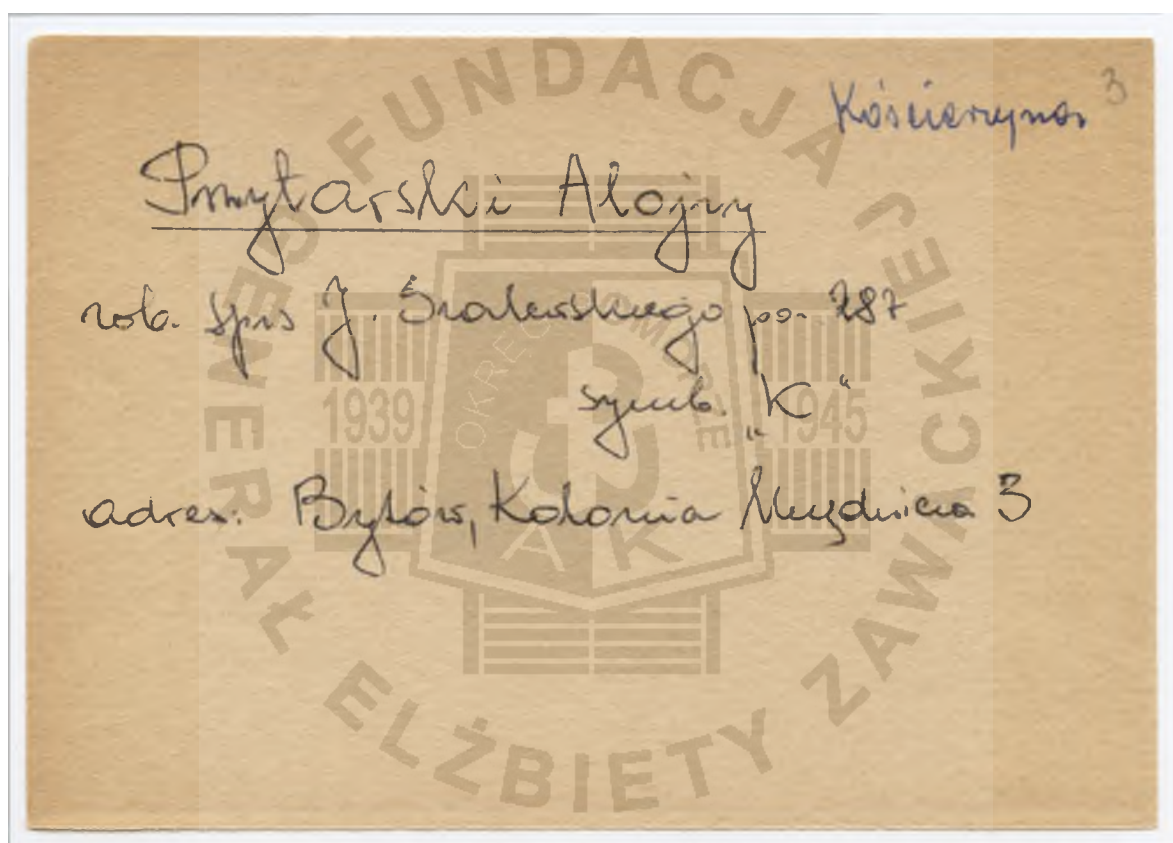 Kościerzyna 3
Przytarski Alojzy
rob. spis J. Szalewskiego po. 287
symb. "K"
adres: Bytów, Kolonia 3
FUNDACJA
GENERAŁ ELŻBIETY ZAWACKIEJ
OKRĘG POMORZE
1939 1945
AK